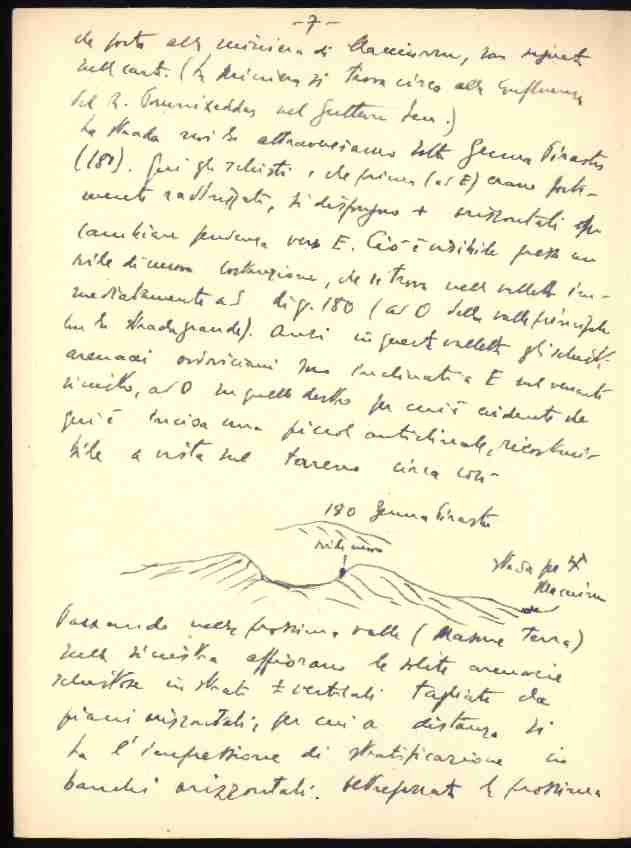 - 7 -
che porta alla miniera di Macciurru, non segnata
nella carta. (La miniera si trova circa alla confluenza
del R. Prunixeddas nel
La strada noi la attraversiamo sotto Genna Pirastu
(180). Qui gli schisti, che prima (ad E) erano forte-
mente raddrizzati, si dispongono + orizzontali
cambiare pendenza verso E. Ciò è visibile presso un
ovile di nuova costruzione, che si trova nella valletta im-
mediatamente a S di q. 180 (ad O della valle principale
con la strada grande). Anzi in questa valletta gli schisti
arenacei ordoviciani sono inclinati a E sul versante
sinistro, ad O in quello destro per cui è evidente che
qui è incisa una piccola anticlinale, ricostrui-
bile a vista sul terreno circa così
180 Genna Pirastu
ovile nuovo
strada per
Macciurru
Passando nella prossima valle ( Terra)
sulla sinistra affiorano le solite arenarie
schistose in strati ± verticali tagliate da
piani orizzontali, per cui a distanza si
ha l'impressione di stratificazione in
banchi orizzontali. Oltrepassata la prossima